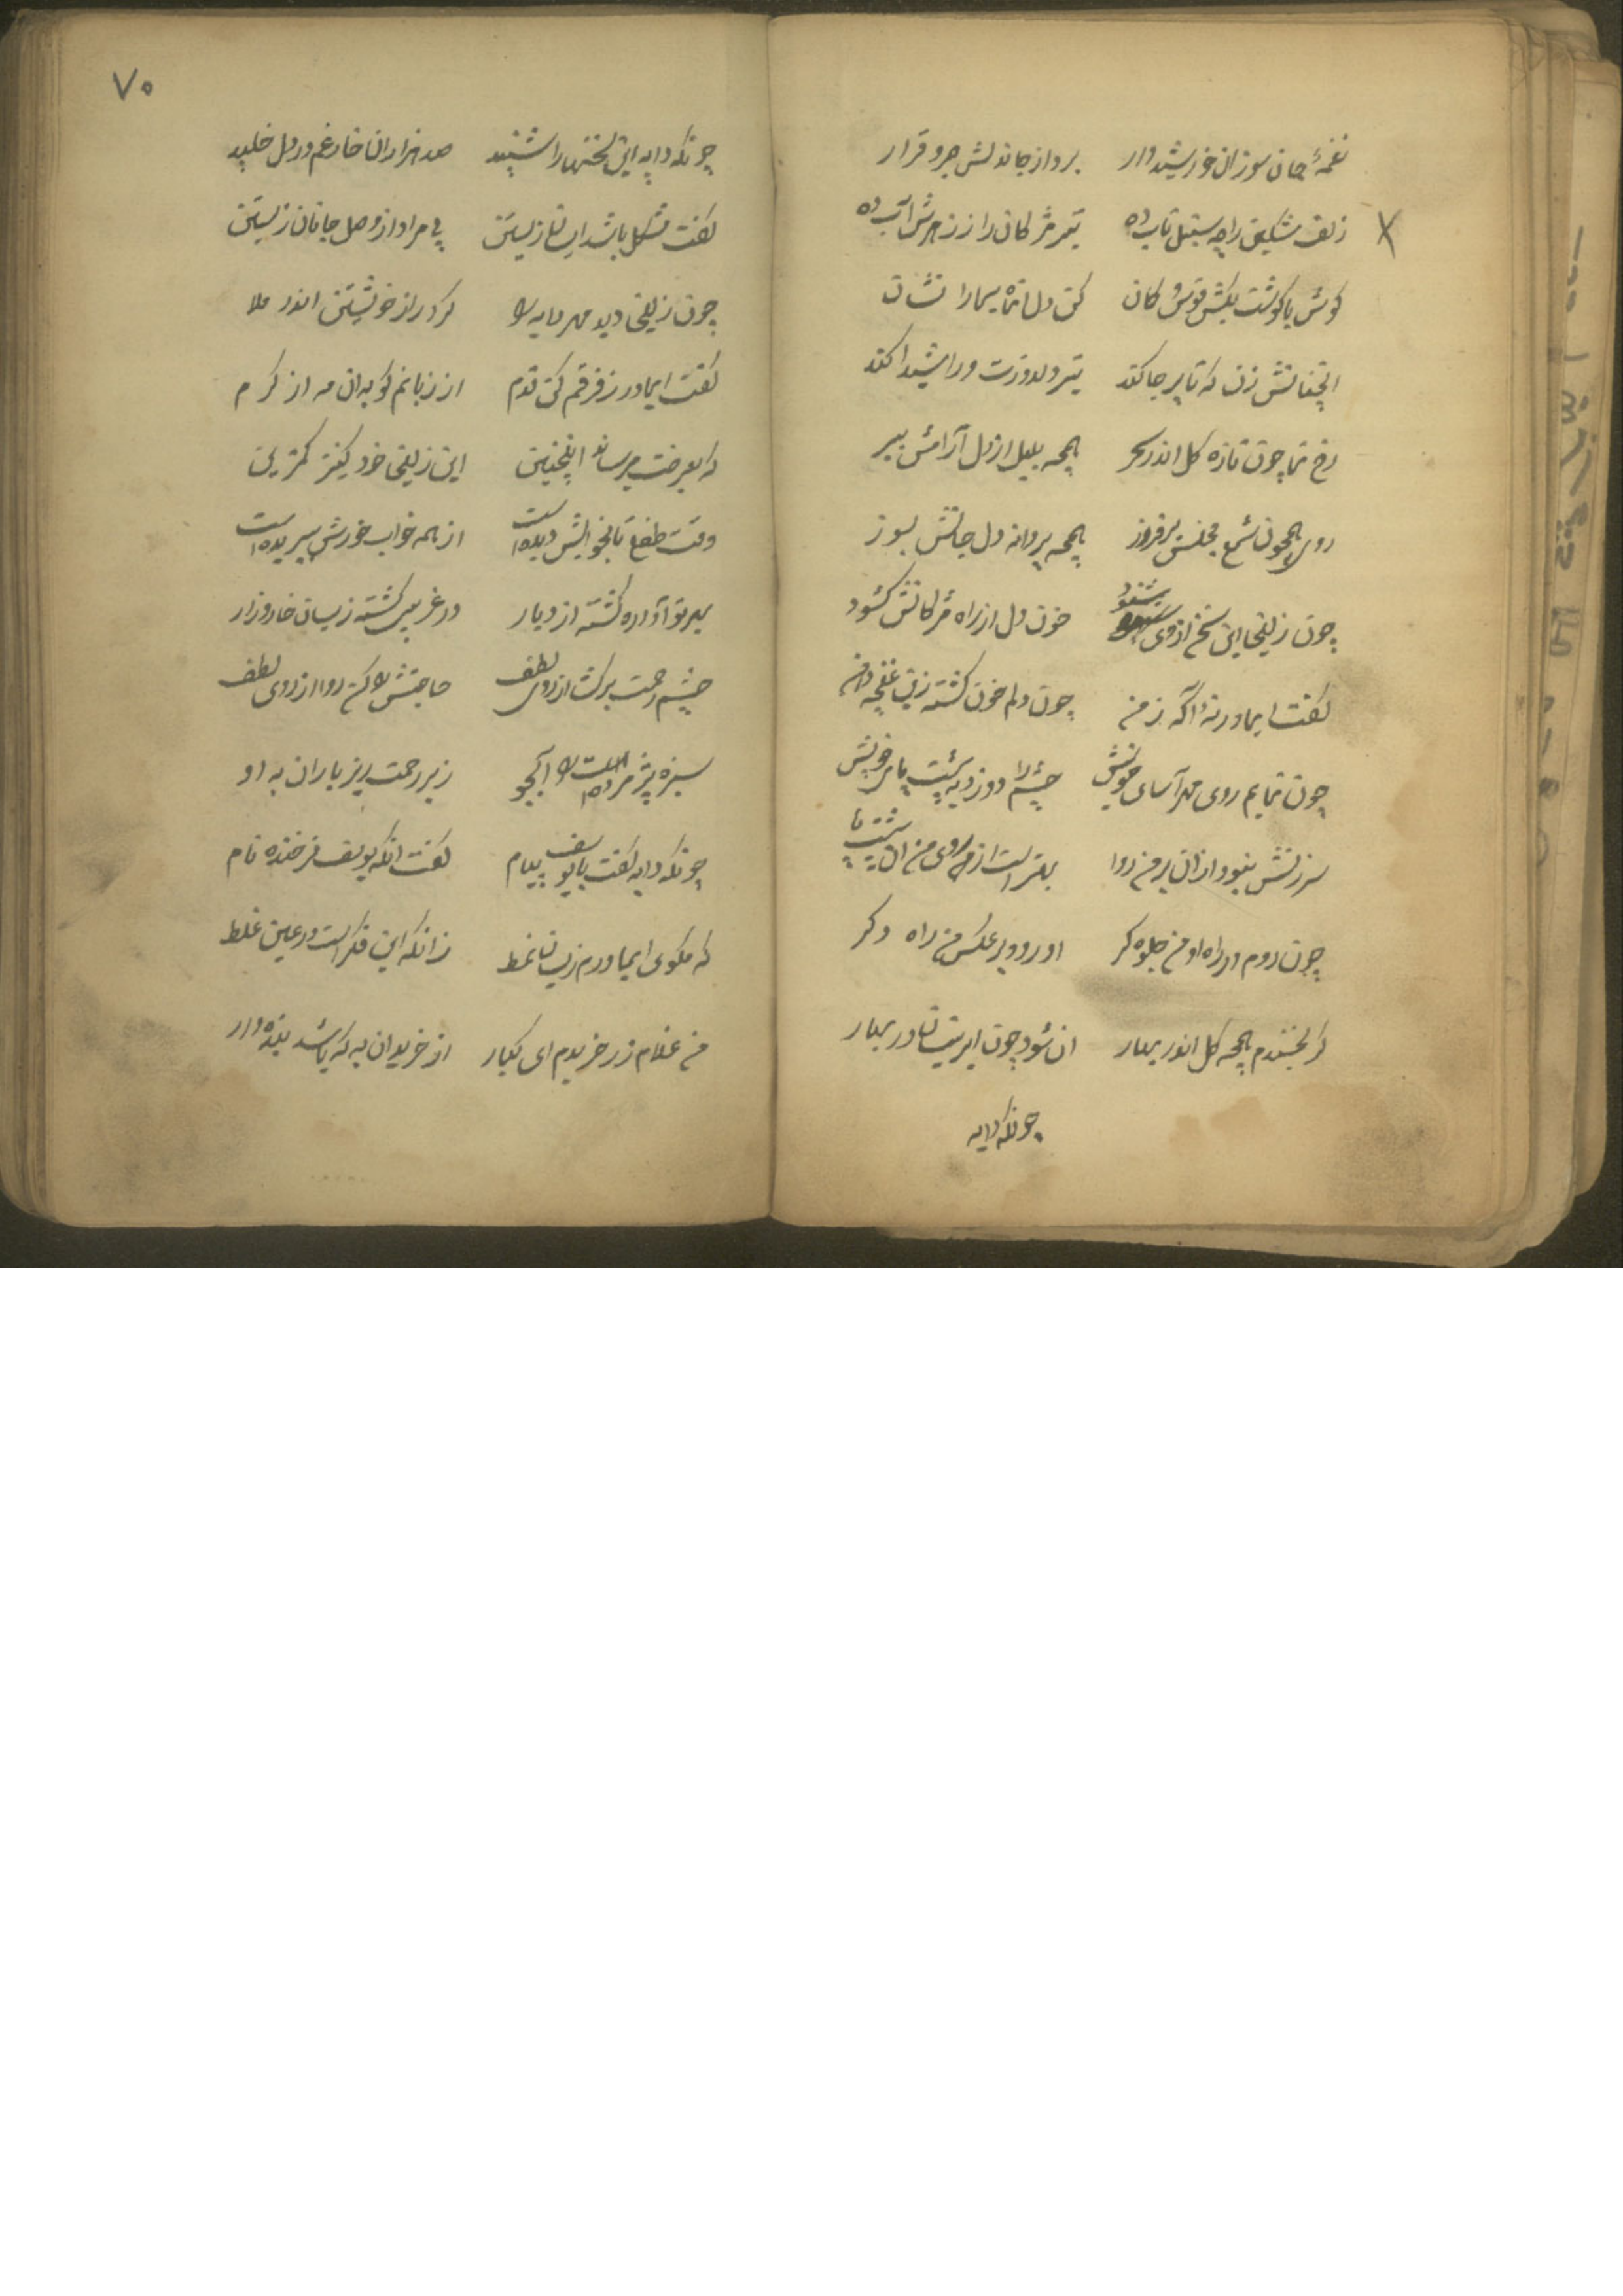 نغمهٔ جان سوز ان خورشیدوار بردار جاندلش جبر و قرار
زلف مشکین را چه سنبل تاب ده تیر مژکان را ز زهرش آب ده
کوش با کوشت بکش قوس کمان کن دل انماه سیما را نشان
انچنانش زن که تا پر جا کند تیر دلدوزت ورا شیدا کند
رخ نما چون تازه کل اندر سحر همچه بلبل از دل آرامش ببر
روی همچون شمع مجلس برفروز همچه پروانه دل جانش بسوز
چون زلیخا این سخن از وی شنود خون دل از راه مژکانش کشود
کفت ایمادر نهٔ آکه ز من چون دلم خون کشته زین غنچه دهن
چون نمایم روی مهر آسای خویش چشم را دوزد به پشت پای خویش
سرزنش نبود ازان بر من روا بهتر است از روی من ان پشت پا
چون روم در راه او من جلوه کر او رود بر عکس من راه دکر
کر بخندم همچه کل اندر بهار ان شود چون ابر نیسان در بهار
چونکه دایه
۷۰
چونکه دایه این سخنها را شنید صد هزاران خار غم در دل خلید
کفت مشکل باشد اینسان زیستن بی مراد از وصل جانان زیستن
چون زلیخا دید مهر دایه را کرد راز خویشتن اندر ملا
کفت ایمادر ز فرقم کن قدم از زبانم کو به ان مه از کرم
که بعرضت میرساند اینچنین این زلیخا خود کنیز کمترین
وقت طفلی تا بخوابش دیده است از همه خواب خورش ببریده است
بهر تو آواره کشته از دیار در غریبی کشته زینسان خار و زار
چشم رحمت برکشا از روی لطف حاجتش را کن روا از روی لطف
سبزه پژمرده است را آبجو زیر رحمت ریز باران به او
چونکه دایه کفت با یوسف پیام کفت انکه یوسف فرخنده نام
که مکوی ایمادرم زینسان نمط زانکه این فکر است در عین غلط
من غلام زر خریدم ای کبار از خریدان به که باشد بنده وار